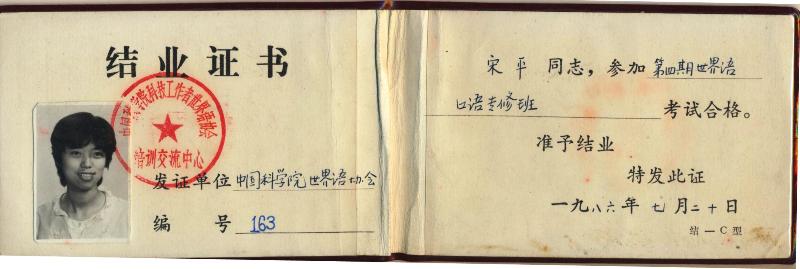 结业证书
科技工作者世界语协会
培训交流中心
发证单位 中国科学院世界语协会
编 号 163
宋平 同志，参加 第四期世界语
口语专修班 考试合格。
准予结业
特发此证
一九八六年七月二十日
结—C型